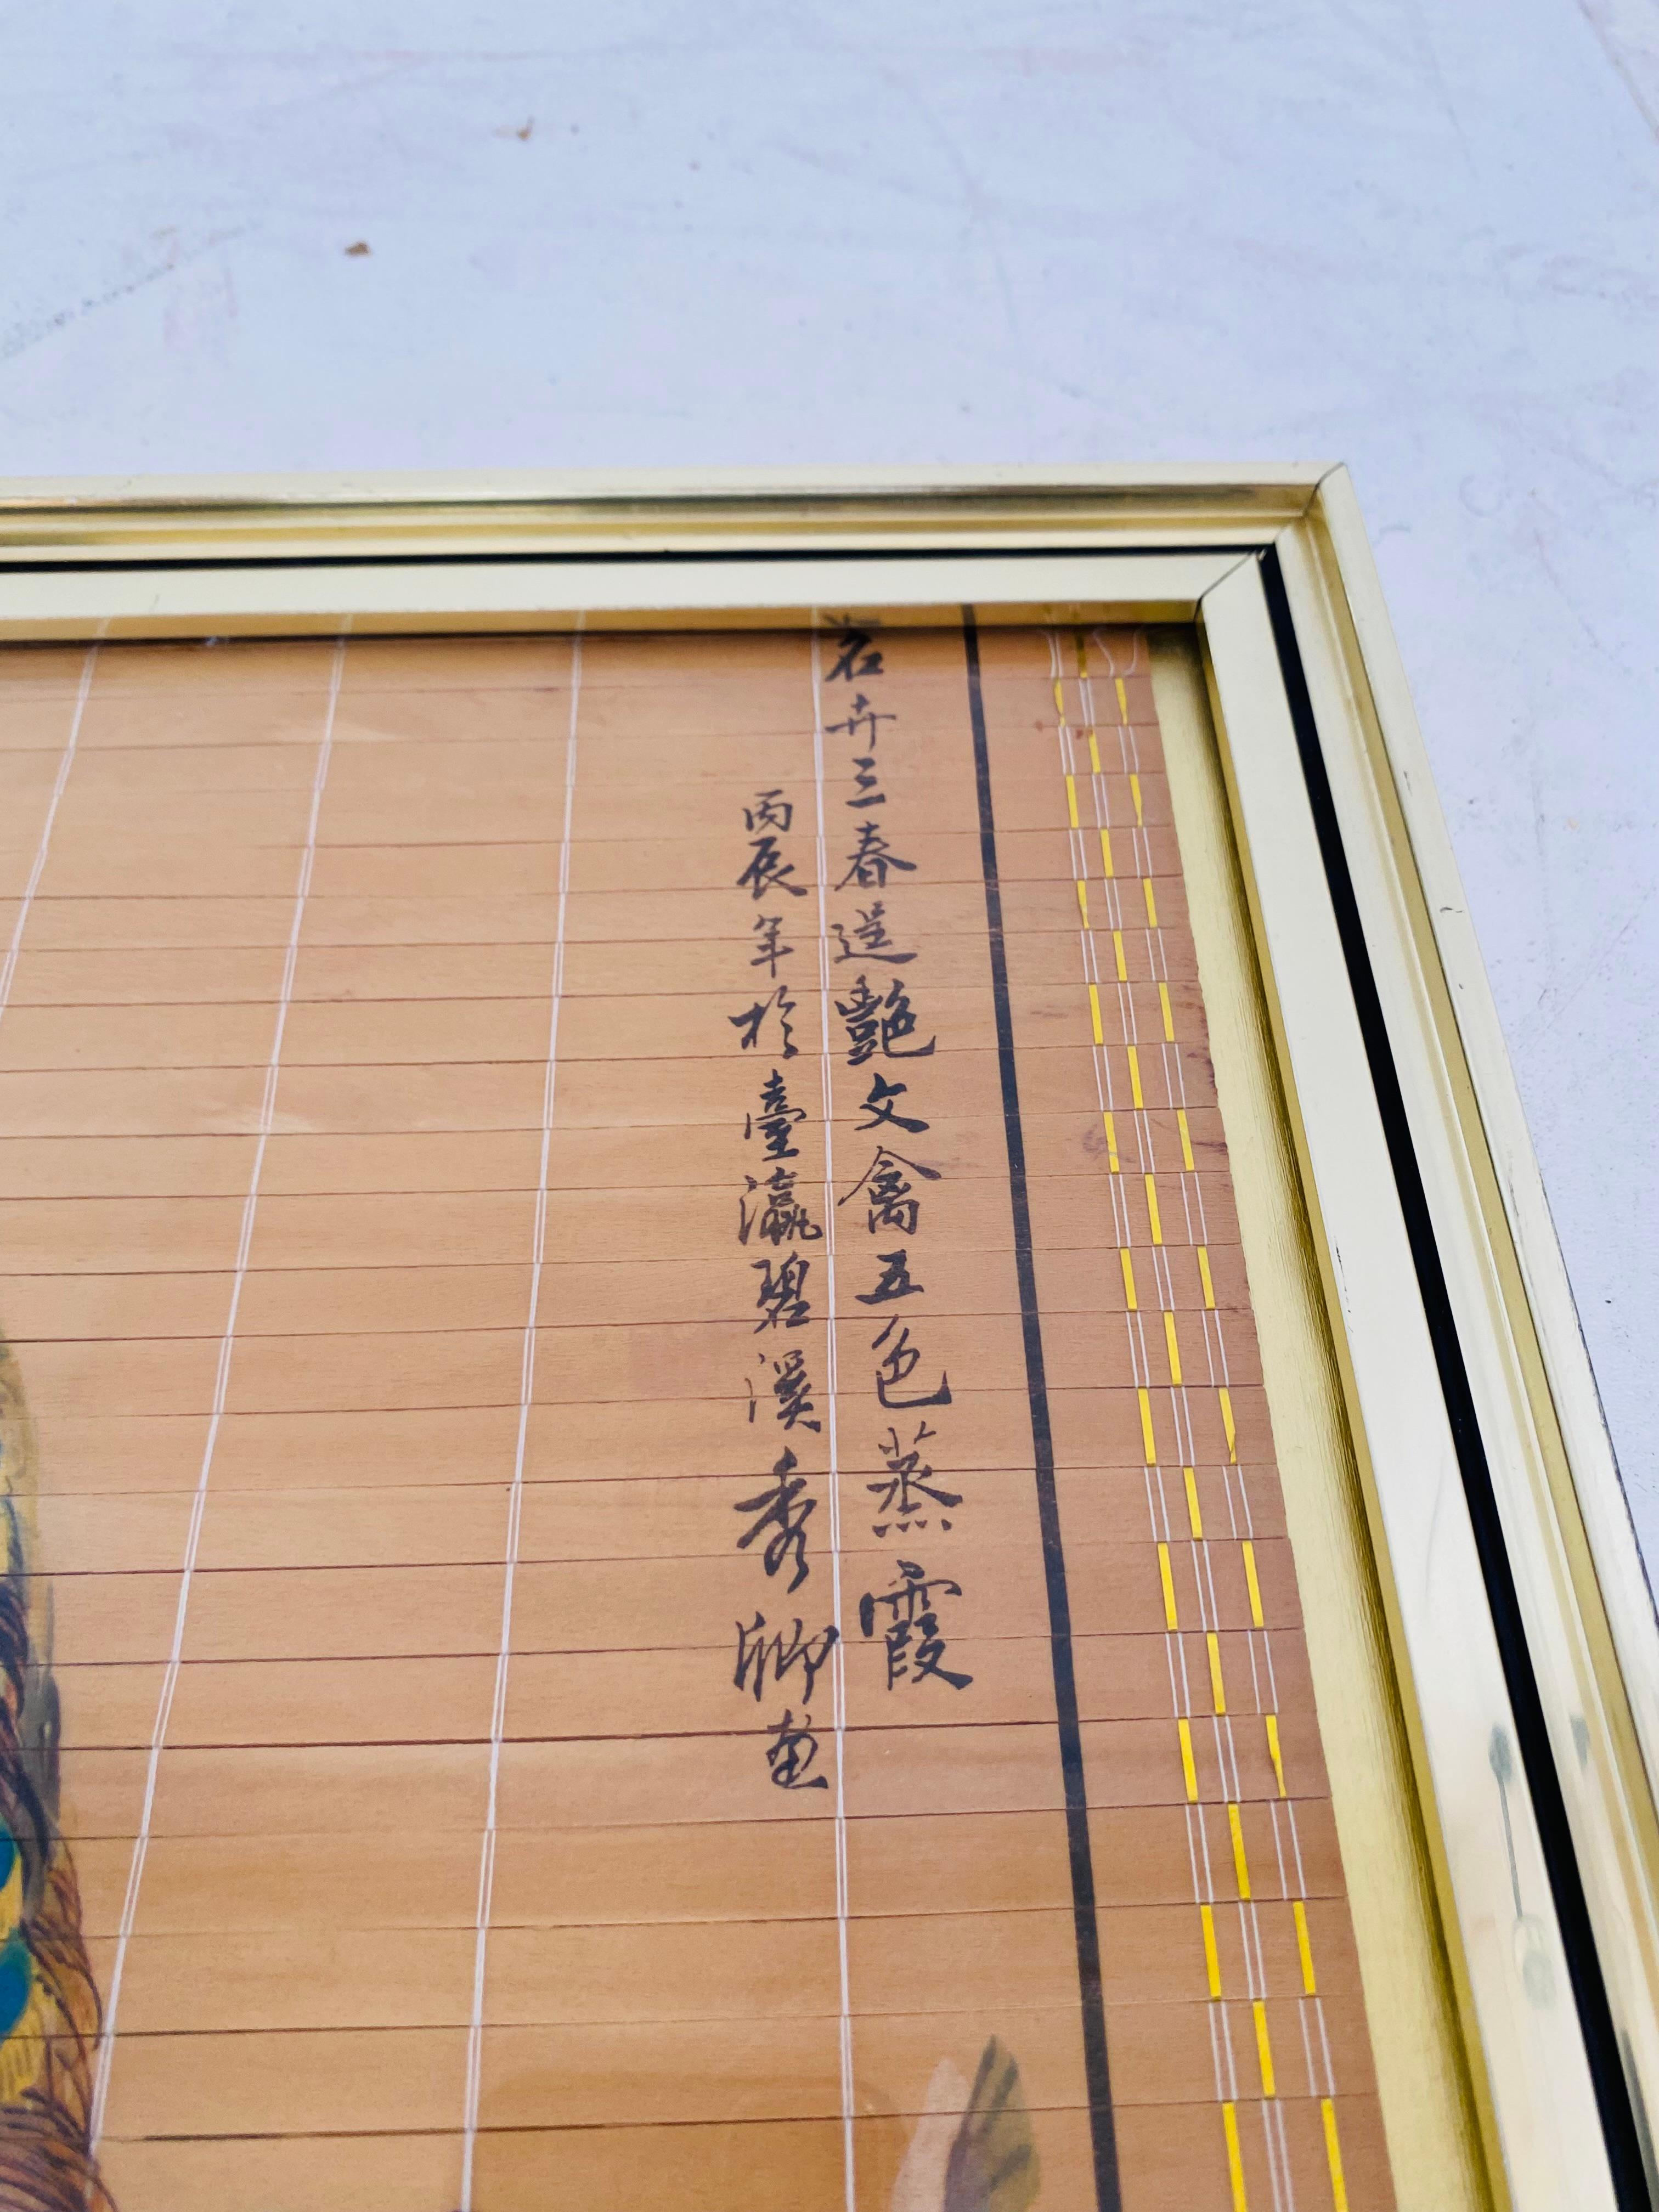 名卉三春逞艷文禽五色蒸霞
丙辰年於臺瀛碧溪秀卿畫